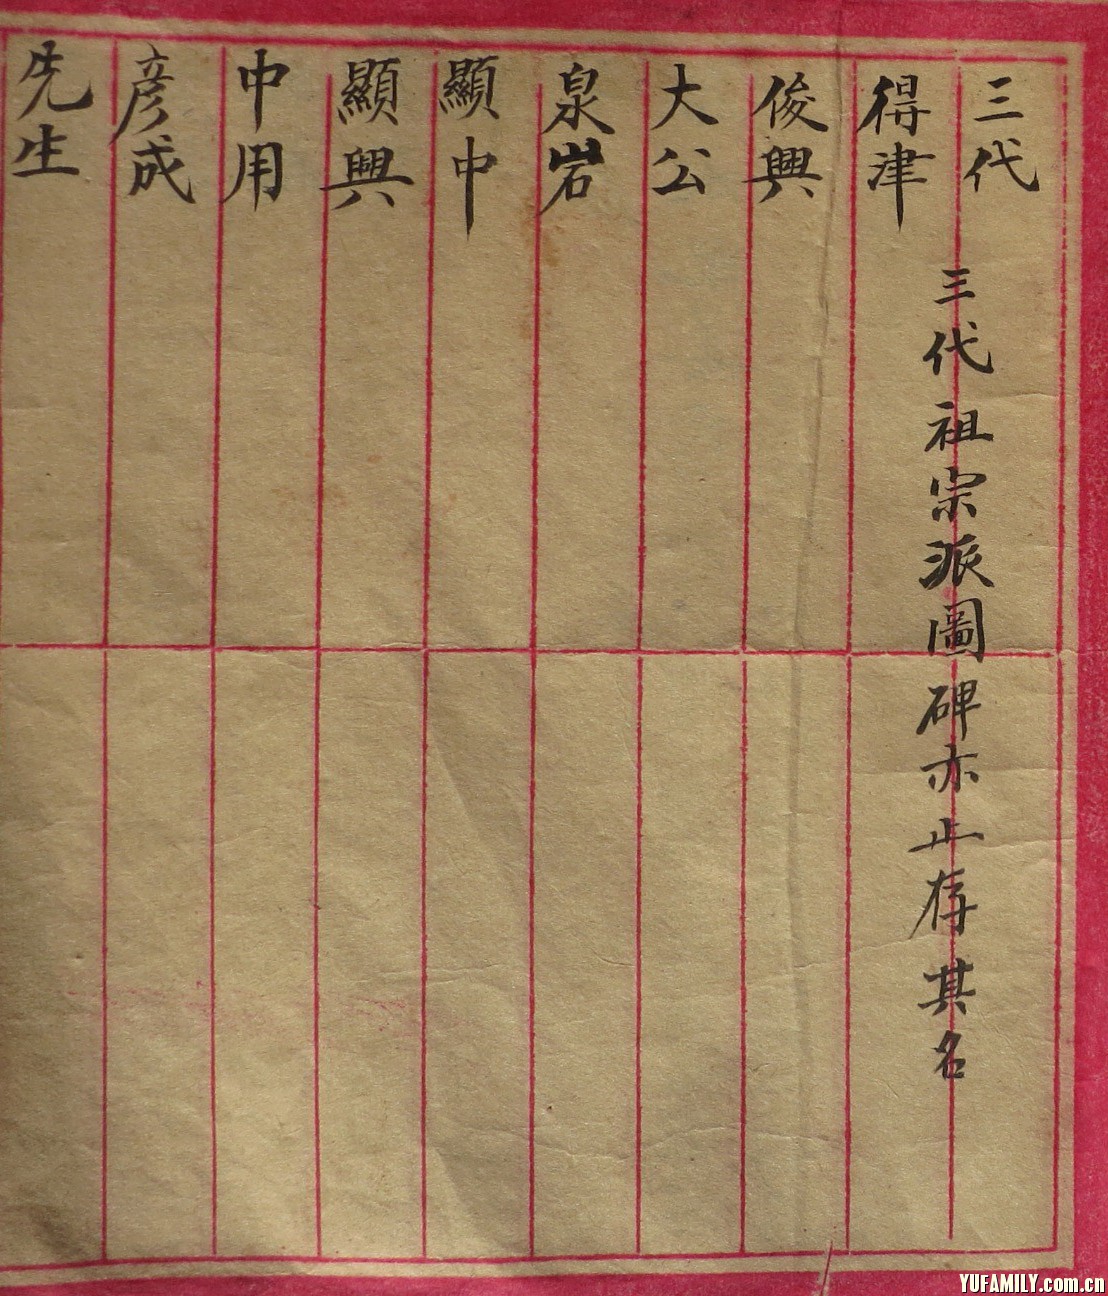 三代
三代祖宗派圖碑亦止存其名
得津
俊興
大公
泉岩
顯中
顯興
中用
彦成
先生
YUFAMILY.com.cn